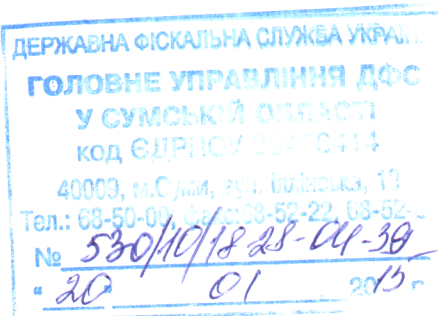 ДЕРЖАВНА ФІСКАЛЬНА СЛУЖБА
ГОЛОВНЕ УПРАВЛІННЯ ДФС
У СУМСЬКІЙ ОБЛАСТІ
код ЄДРПОУ
40009, м.Суми, вул. Іллінська, 13
Тел.: 68-50-00, факс:68-52-22,
№ 530/10/18-28-04-39
"20" 01 2015 г